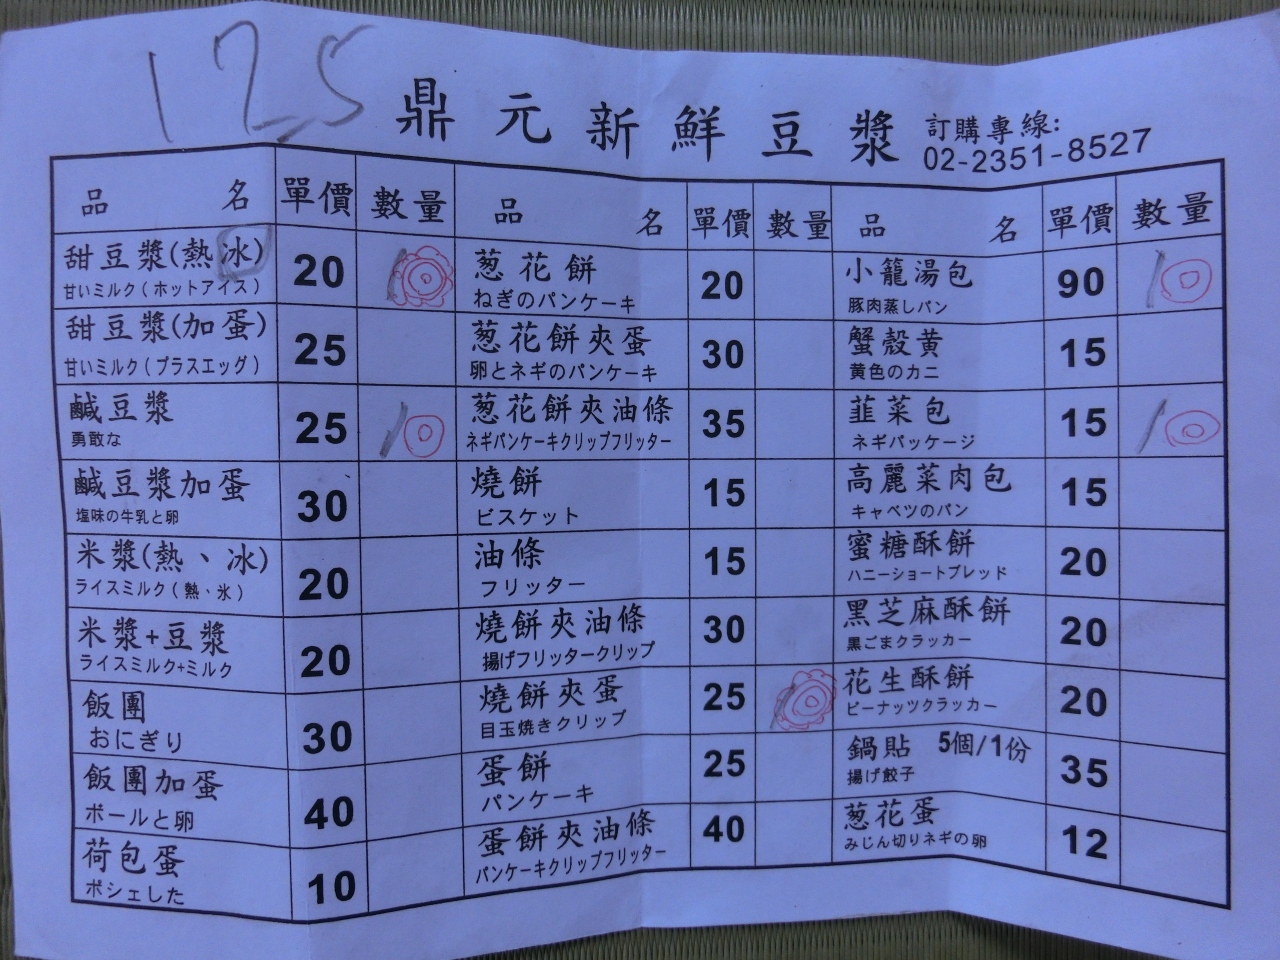 175
鼎元新鮮豆漿
訂購專線:
02-2351-8527
品名 單價 數量 品名 單價 數量 品名 單價 數量
甜豆漿(熱冰) 20 1 葱花餅 20 小籠湯包 90 1
甘いミルク(ホットアイス) ねぎのパンケーキ 豚肉蒸しパン
甜豆漿(加蛋) 25 葱花餅夾蛋 30 蟹殼黄 15
甘いミルク(プラスエッグ) 卵とネギのパンケーキ 黄色のカニ
鹹豆漿 25 1 葱花餅夾油條 35 韮菜包 15 1
勇敢な ネギパンケーキクリップフリッター ネギパッケージ
鹹豆漿加蛋 30 燒餅 15 高麗菜肉包 15
塩味の牛乳と卵 ビスケット キャベツのパン
米漿(熱、冰) 20 油條 15 蜜糖酥餅 20
ライスミルク(熱、氷) フリッター ハニーショートブレッド
米漿+豆漿 20 燒餅夾油條 30 黑芝麻酥餅 20
ライスミルク+ミルク 揚げフリッタークリップ 黒ごまクラッカー
飯團 30 燒餅夾蛋 25 1 花生酥餅 20
おにぎり 目玉焼きクリップ ピーナッツクラッカー
飯團加蛋 40 蛋餅 25 鍋貼 5個/1份 35
ボールと卵 パンケーキ 揚げ餃子
荷包蛋 10 蛋餅夾油條 40 葱花蛋 12
ポシェした パンケーキクリップフリッター みじん切りネギの卵